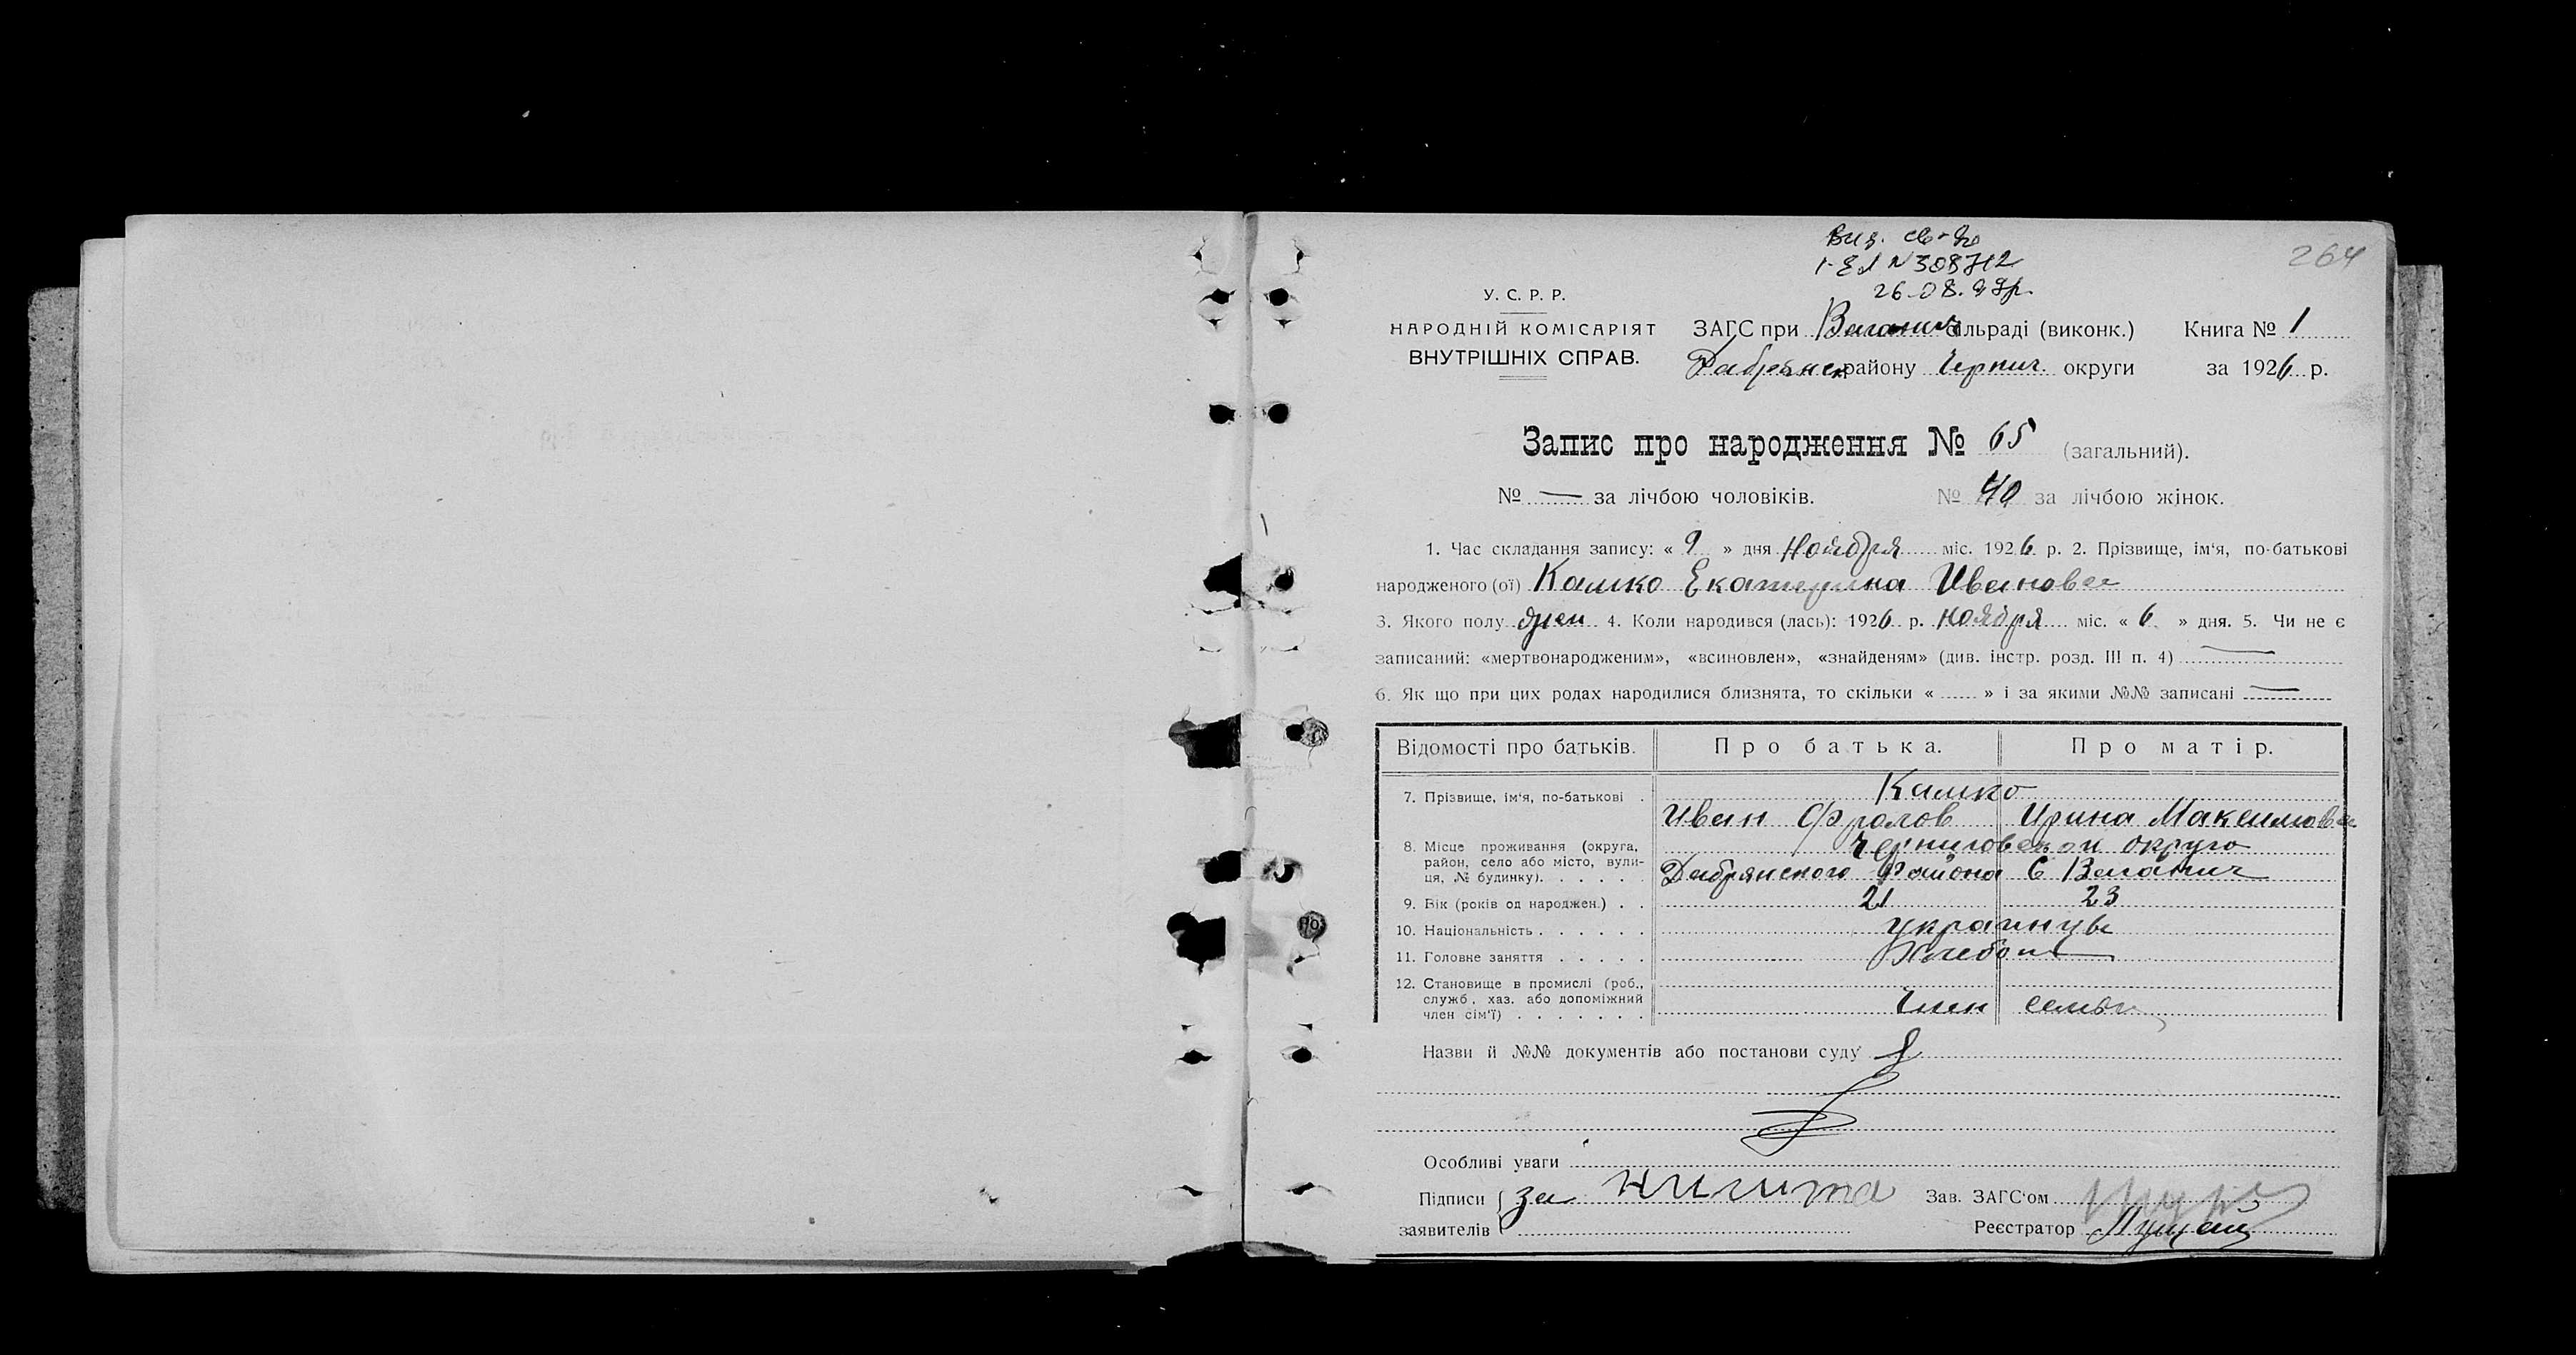 Вид. св-во
І-ЕЛ № 308712
26.08.
264
У. С. Р. Р.
НАРОДНІЙ КОМІСАРІЯТ
ВНУТРІШНІХ СПРАВ.
ЗАГС при Ваганич сільраді (виконк.) Книга № 1
Добрянск району Черниг. округи за 1926 р.
Запис про народження № 65 (загальний).
№ — за лічбою чоловіків. № 40 за лічбою жінок.
1. Час складання запису: « 9 » дня Ноября міс. 1926 р. 2. Прізвище, ім'я, по-батькові
народженого (ої) Камко Екатерина Иванова
3. Якого полу жен 4. Коли народився (лась): 1926 р. ноября міс. « 6 » дня. 5. Чи не є
записаний: «мертвонародженим», «всиновлен», «знайденям» (див. інстр. розд. III п. 4) —
6. Як що при цих родах народилися близнята, то скільки « » і за якими №№ записані —
Відомості про батьків. Про батька. Про матір.
7. Прізвище, ім'я, по-батькові . Камко
Иван Фролов Ирина Максимова
8. Місце проживання (округа, район, село або місто, вулиця, № будинку). Черниговской округо
Добрянского района С Ваганич
9. Вік (років од народжен.) . . 21 23
10. Національність . . . . . . украинцы
11. Головне заняття . . . . . Хлебоп
12. Становище в промислі (роб., служб., хаз. або допоміжний член сім'ї) . . . . . . . Член семьи
Назви й №№ документів або постанови суду
Особливі уваги
Підписи за Зав. ЗАГС'ом
заявителів Реєстратор